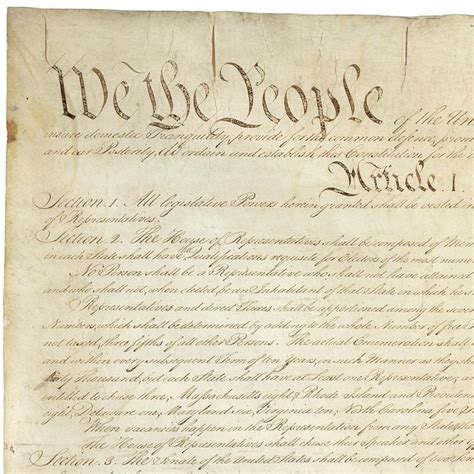 We the People of the Un
insure domestic Tranquility, provide for the common defence, prom
and our Posterity, do ordain and establish this Constitution for the
Article. I.
Section. 1. All legislative Powers herein granted shall be vested in
of Representatives.
Section. 2. The House of Representatives shall be composed of Mem
in each State shall have the Qualifications requisite for Electors of the most numer
No Person shall be a Representative who shall not have attained
and who shall not, when elected, be an Inhabitant of that State in which he
Representatives and direct Taxes shall be apportioned among the sever
Numbers, which shall be determined by adding to the whole Number of free
not taxed, three fifths of all other Persons. The actual Enumeration shall
and within every subsequent Term of ten Years, in such Manner as they
thirty Thousand, but each State shall have at Least one Representative;
entitled to chuse three, Massachusetts eight, Rhode-Island and Providen
eight, Delaware one, Maryland six, Virginia ten, North Carolina five
When vacancies happen in the Representation from any State
The House of Representatives shall chuse their Speaker and other
Section. 3. The Senate of the United States shall be composed of two